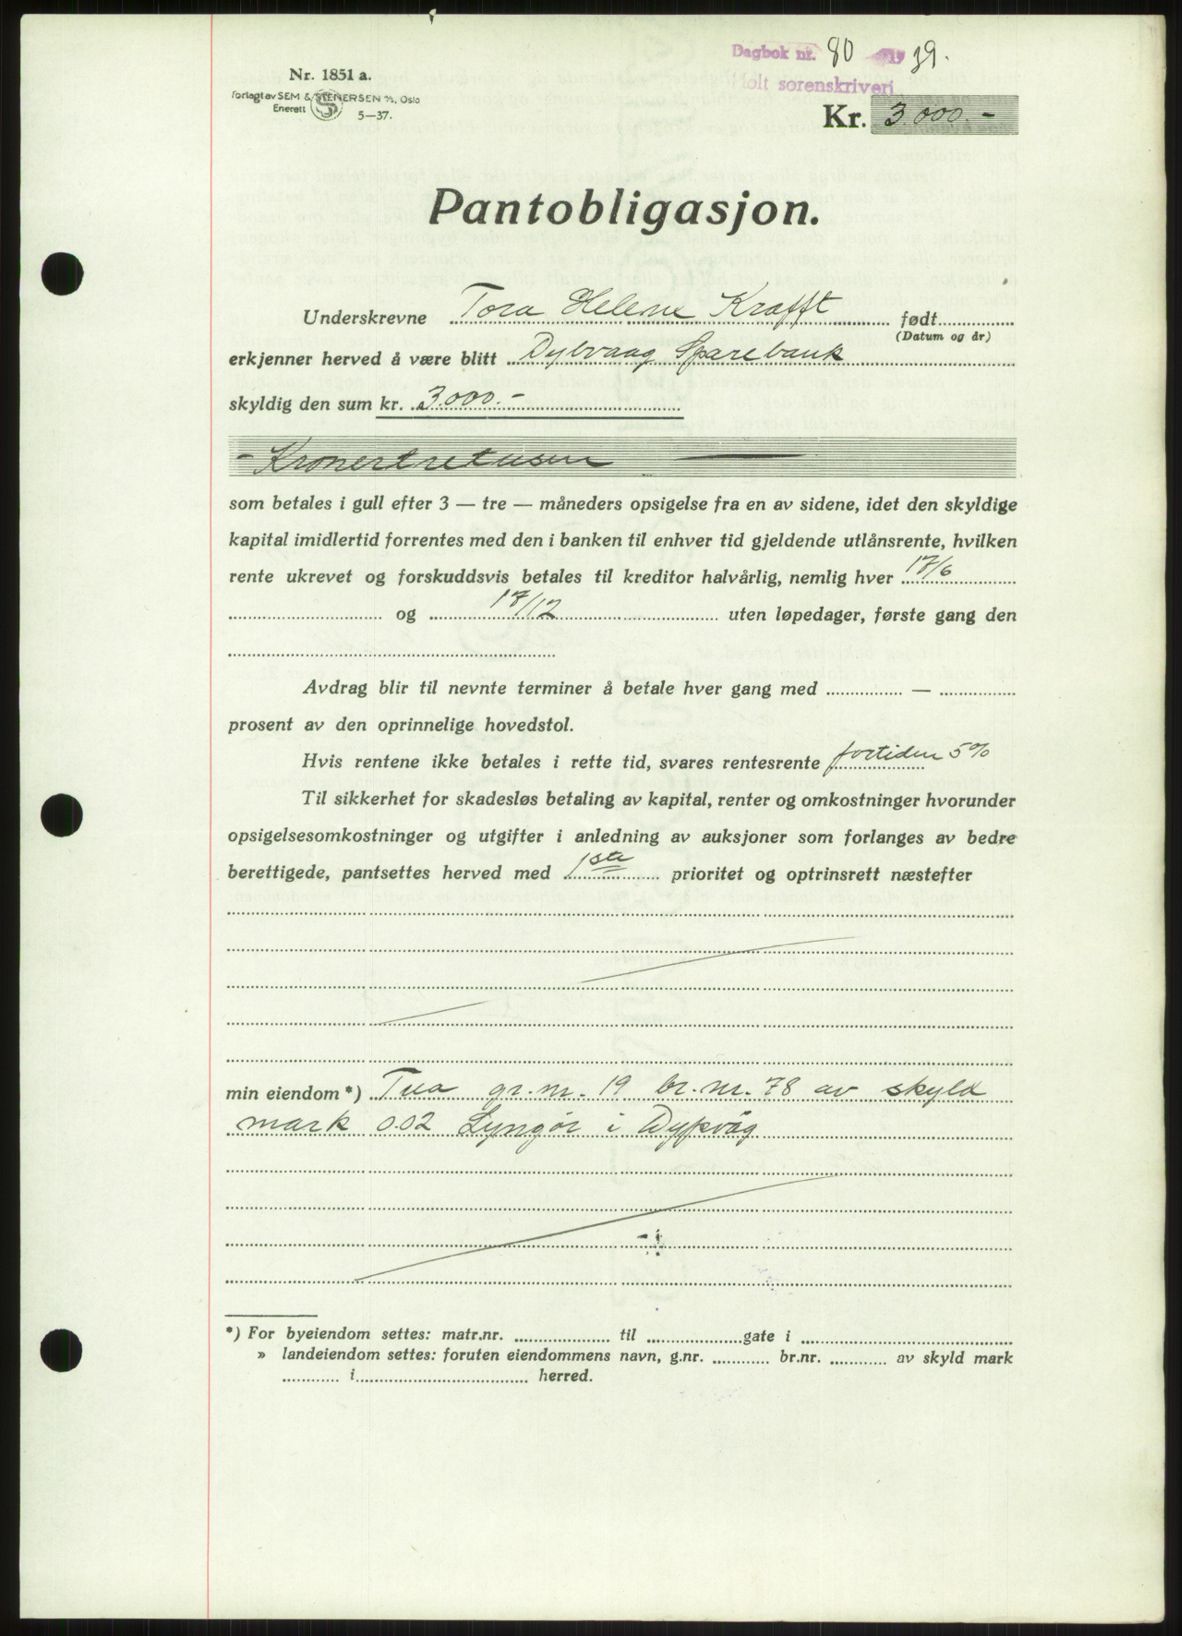 Dagbok nr. 80 1939.
Holt sorenskriveri
Nr. 1851 a.
Forlagt av SEM & STENERSEN A/S, Oslo
Enerett
S
5—37.
Kr. 3.000.-
Pantobligasjon.
Underskrevne Tora Helene Krafft født
(Datum og år)
erkjenner herved å være blitt Dybvaag Sparebank
skyldig den sum kr. 3.000.-
- Kronertretusen —
som betales i gull efter 3 — tre — måneders opsigelse fra en av sidene, idet den skyldige
kapital imidlertid forrentes med den i banken til enhver tid gjeldende utlånsrente, hvilken
rente ukrevet og forskuddsvis betales til kreditor halvårlig, nemlig hver 17/6
og 17/12 uten løpedager, første gang den
Avdrag blir til nevnte terminer å betale hver gang med — 
prosent av den oprinnelige hovedstol.
Hvis rentene ikke betales i rette tid, svares rentesrente fortiden 5%
Til sikkerhet for skadesløs betaling av kapital, renter og omkostninger hvorunder
opsigelsesomkostninger og utgifter i anledning av auksjoner som forlanges av bedre
berettigede, pantsettes herved med 1ste prioritet og optrinsrett næstefter
min eiendom *) Tua gr. nr. 19 br. nr. 78 av skyld
mark 0.02 Lyngør i Dypvåg
*) For byeiendom settes: matr.nr. til gate i
» landeiendom settes: foruten eiendommens navn, g.nr. br.nr. av skyld mark
i herred.